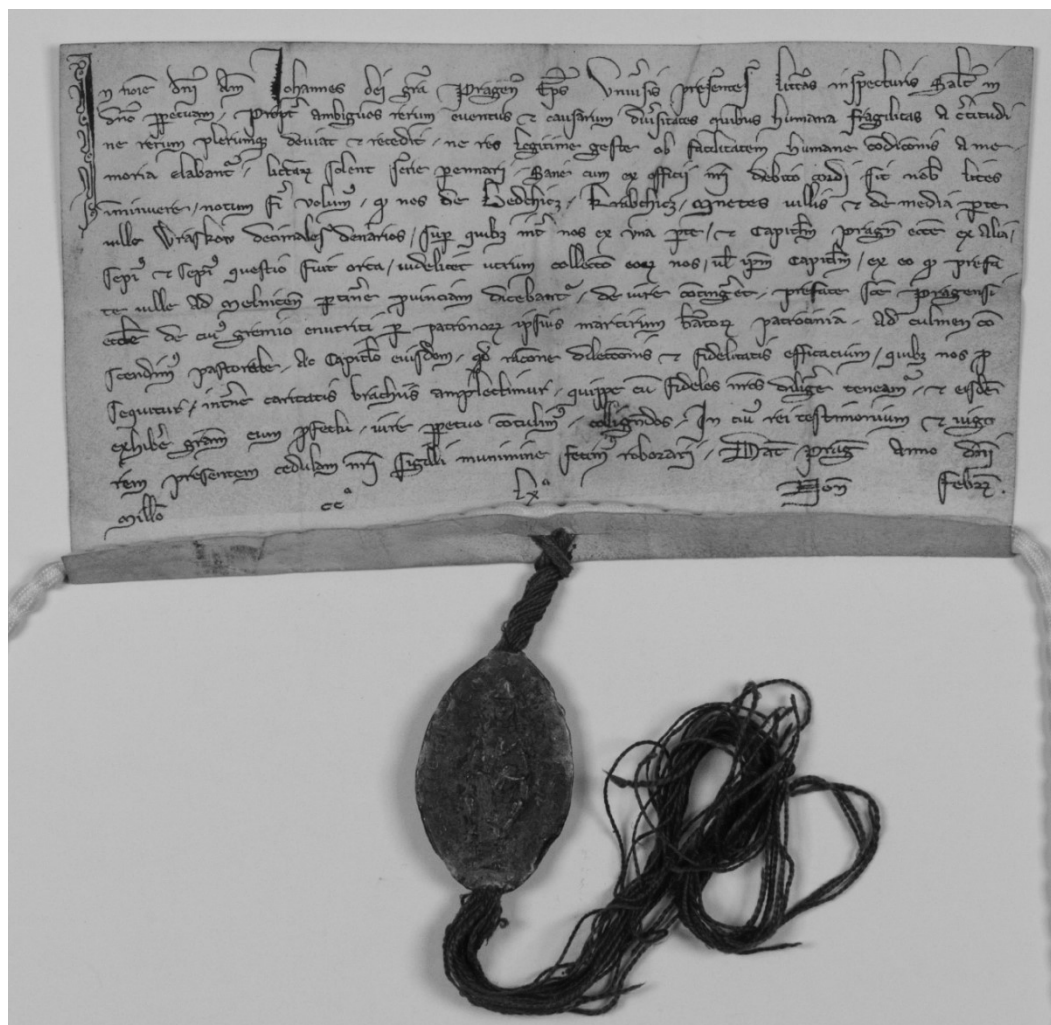 In noīe dn̄i Am̄ Johannes dei gr̄a Pragen̄ Ep̄s Vniūsis presentes litt̄as inspecturis Salt̄ in
dn̄o ꝑpetuam. Propt̄ ambiguos rerum euentus ⁊ causarum diūsitates quibus humana fragilitas a c̄titudi
ne rerum plerumqꝫ deuiat ⁊ recedit, ne res legitime geste ob facilitatem humane ↄdicōnis a me
moria elabant᷑, litt̄arꝫ solent s̄rie ꝑennari. Sane cum ex officii nr̄i debito cordi sit nob̄ lites
imminuere, notum fi᷑ī volum᷒, ꝙ nos de Bedchicz, Krabchicz, Mnetes villis ⁊ de media ꝑte
ville Wraskow decimales denarios, suꝑ quibꝫ int̄ nos ex vna ꝑte, ⁊ Capitl̄m pragn̄ ecc̄e ex alia,
sepi᷒ ⁊ sepi᷒ questio fuit orta, videlicet vtrum collectō eoꝝ nos, vl̄ ip̄m Capitl̄m, ex eo ꝙ prefa
te ville ad Melnicen̄ ꝑtin̄e ꝓuinciam dicebant᷑, de iure ↄtinḡet, prefate sc̄e pragensi
ecc̄e de cui᷒ gremio enutriti ꝑ patronoꝝ ipsius martirum b̄atoꝝ patrocinia, ad culmen ↄ
scendim᷒ pastorale, ac Capitl̄o eiusdem, qd̄ rac̄one dilecc̄onis ⁊ fidelitatis efficacium, quibꝫ nos ꝓ
sequitur, int̄ne caritatis brachiis amplectimur, quippe cū fideles nr̄os diliḡe teneam᷒, ⁊ eisdē
exhib̄e gr̄am cum ꝓfectu, iure ꝑpetuo ↄtulim᷒, colliḡndos. In cui᷒ rei testimonium ⁊ uigo
rem presentem cedulam nr̄i sigilli munimine fecim᷒ roborari. Dat̄ Prag̅ Anno dn̄i
Mill̄o ccᵃ lxᵃ Non̄ Febrꝝ.